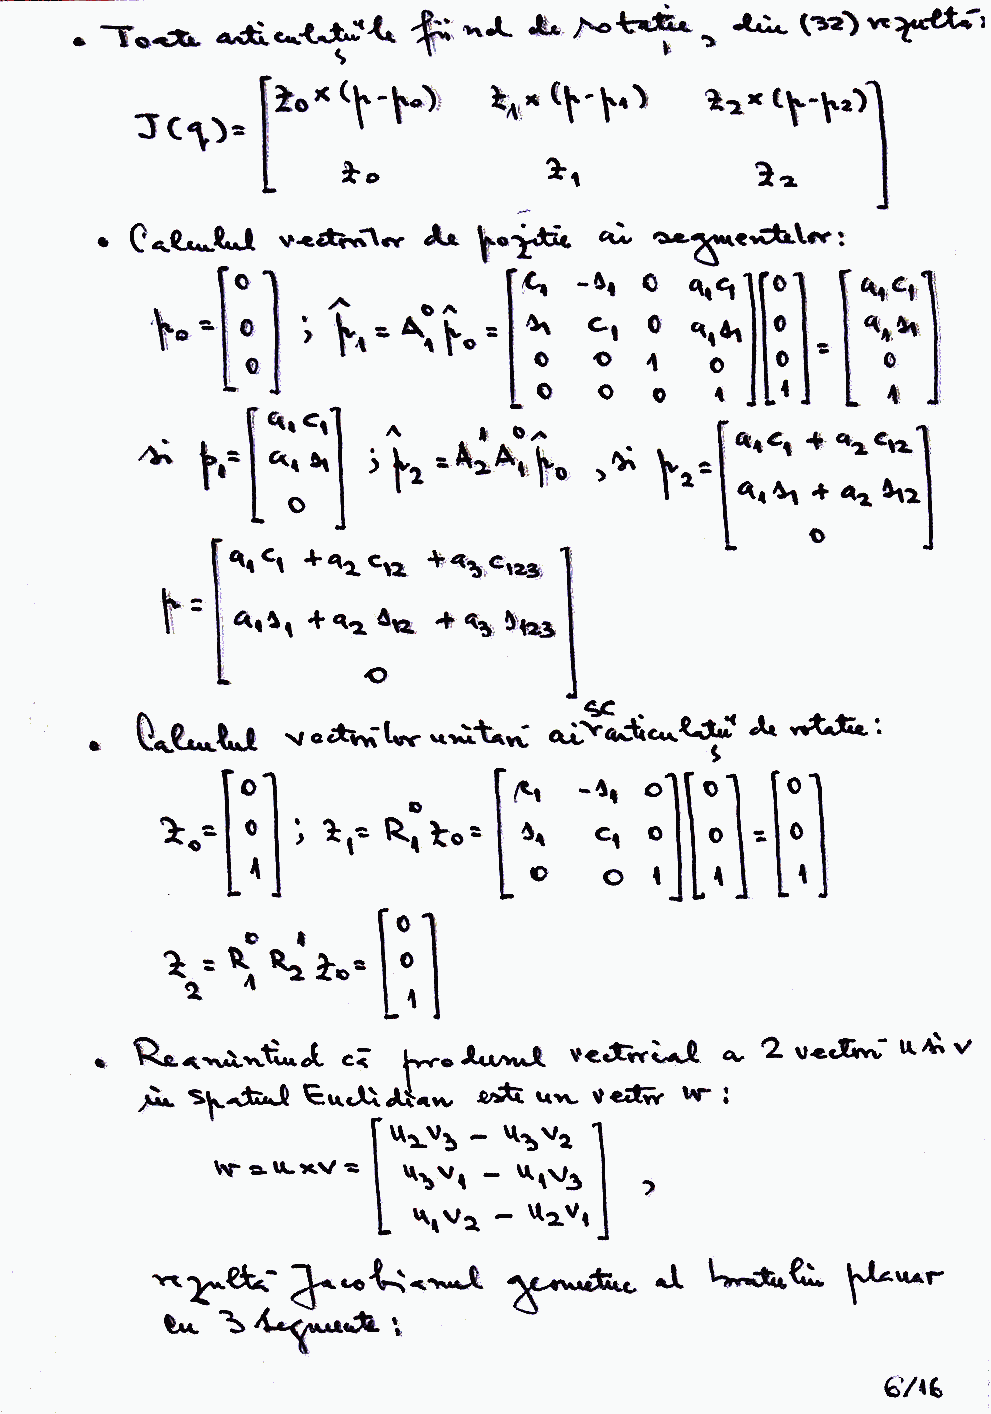 • Toate articulațiile fiind de rotație, din (32) rezultă:
J(q) = [ z₀×(p-p₀)   z₁×(p-p₁)   z₂×(p-p₂)
z₀   z₁   z₂ ]
• Calculul vectorilor de poziție ai segmentelor:
p₀ = [0 0 0] ; p̂₁ = A₁⁰ p̂₀ = [c₁ -s₁ 0 a₁c₁; s₁ c₁ 0 a₁s₁; 0 0 1 0; 0 0 0 1] [0 0 0 1] = [a₁c₁ a₁s₁ 0 1]
si p₁ = [a₁c₁ a₁s₁ 0] ; p̂₂ = A₂¹ A₁⁰ p̂₀ , si p₂ = [a₁c₁ + a₂c₁₂; a₁s₁ + a₂s₁₂; 0]
p = [a₁c₁ + a₂c₁₂ + a₃c₁₂₃
a₁s₁ + a₂s₁₂ + a₃s₁₂₃
0]
• Calculul vectorilor unitari ai SC articulații de rotatie:
z₀ = [0 0 1] ; z₁ = R₁⁰ z₀ = [c₁ -s₁ 0; s₁ c₁ 0; 0 0 1] [0 0 1] = [0 0 1]
z₂ = R₁⁰ R₂¹ z₀ = [0 0 1]
• Reamintind că produsul vectorial a 2 vectori u si v
in spatiul Euclidian este un vector w :
w = u×v = [u₂v₃ - u₃v₂
u₃v₁ - u₁v₃
u₁v₂ - u₂v₁] ,
rezultă Jacobianul geometric al bratului planar
cu 3 segmente :
6/16